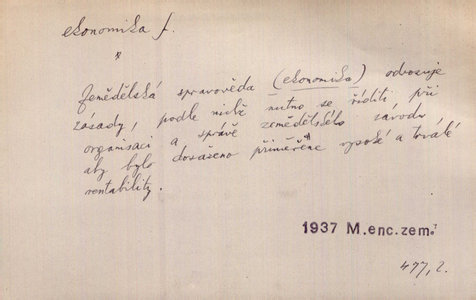 ekonomika f.
"
Zemědělská spravověda (ekonomika) odvozuje
zásady, podle nichž nutno se říditi při
organisaci a správě zemědělského závodu
aby bylo dosaženo přiměřeně vysoké a trvalé
rentability.
1937 M.enc.zem.
477,2.